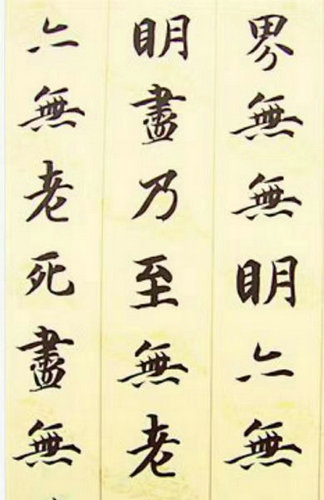 界無無明亦無
明盡乃至無老
亦無老死盡無